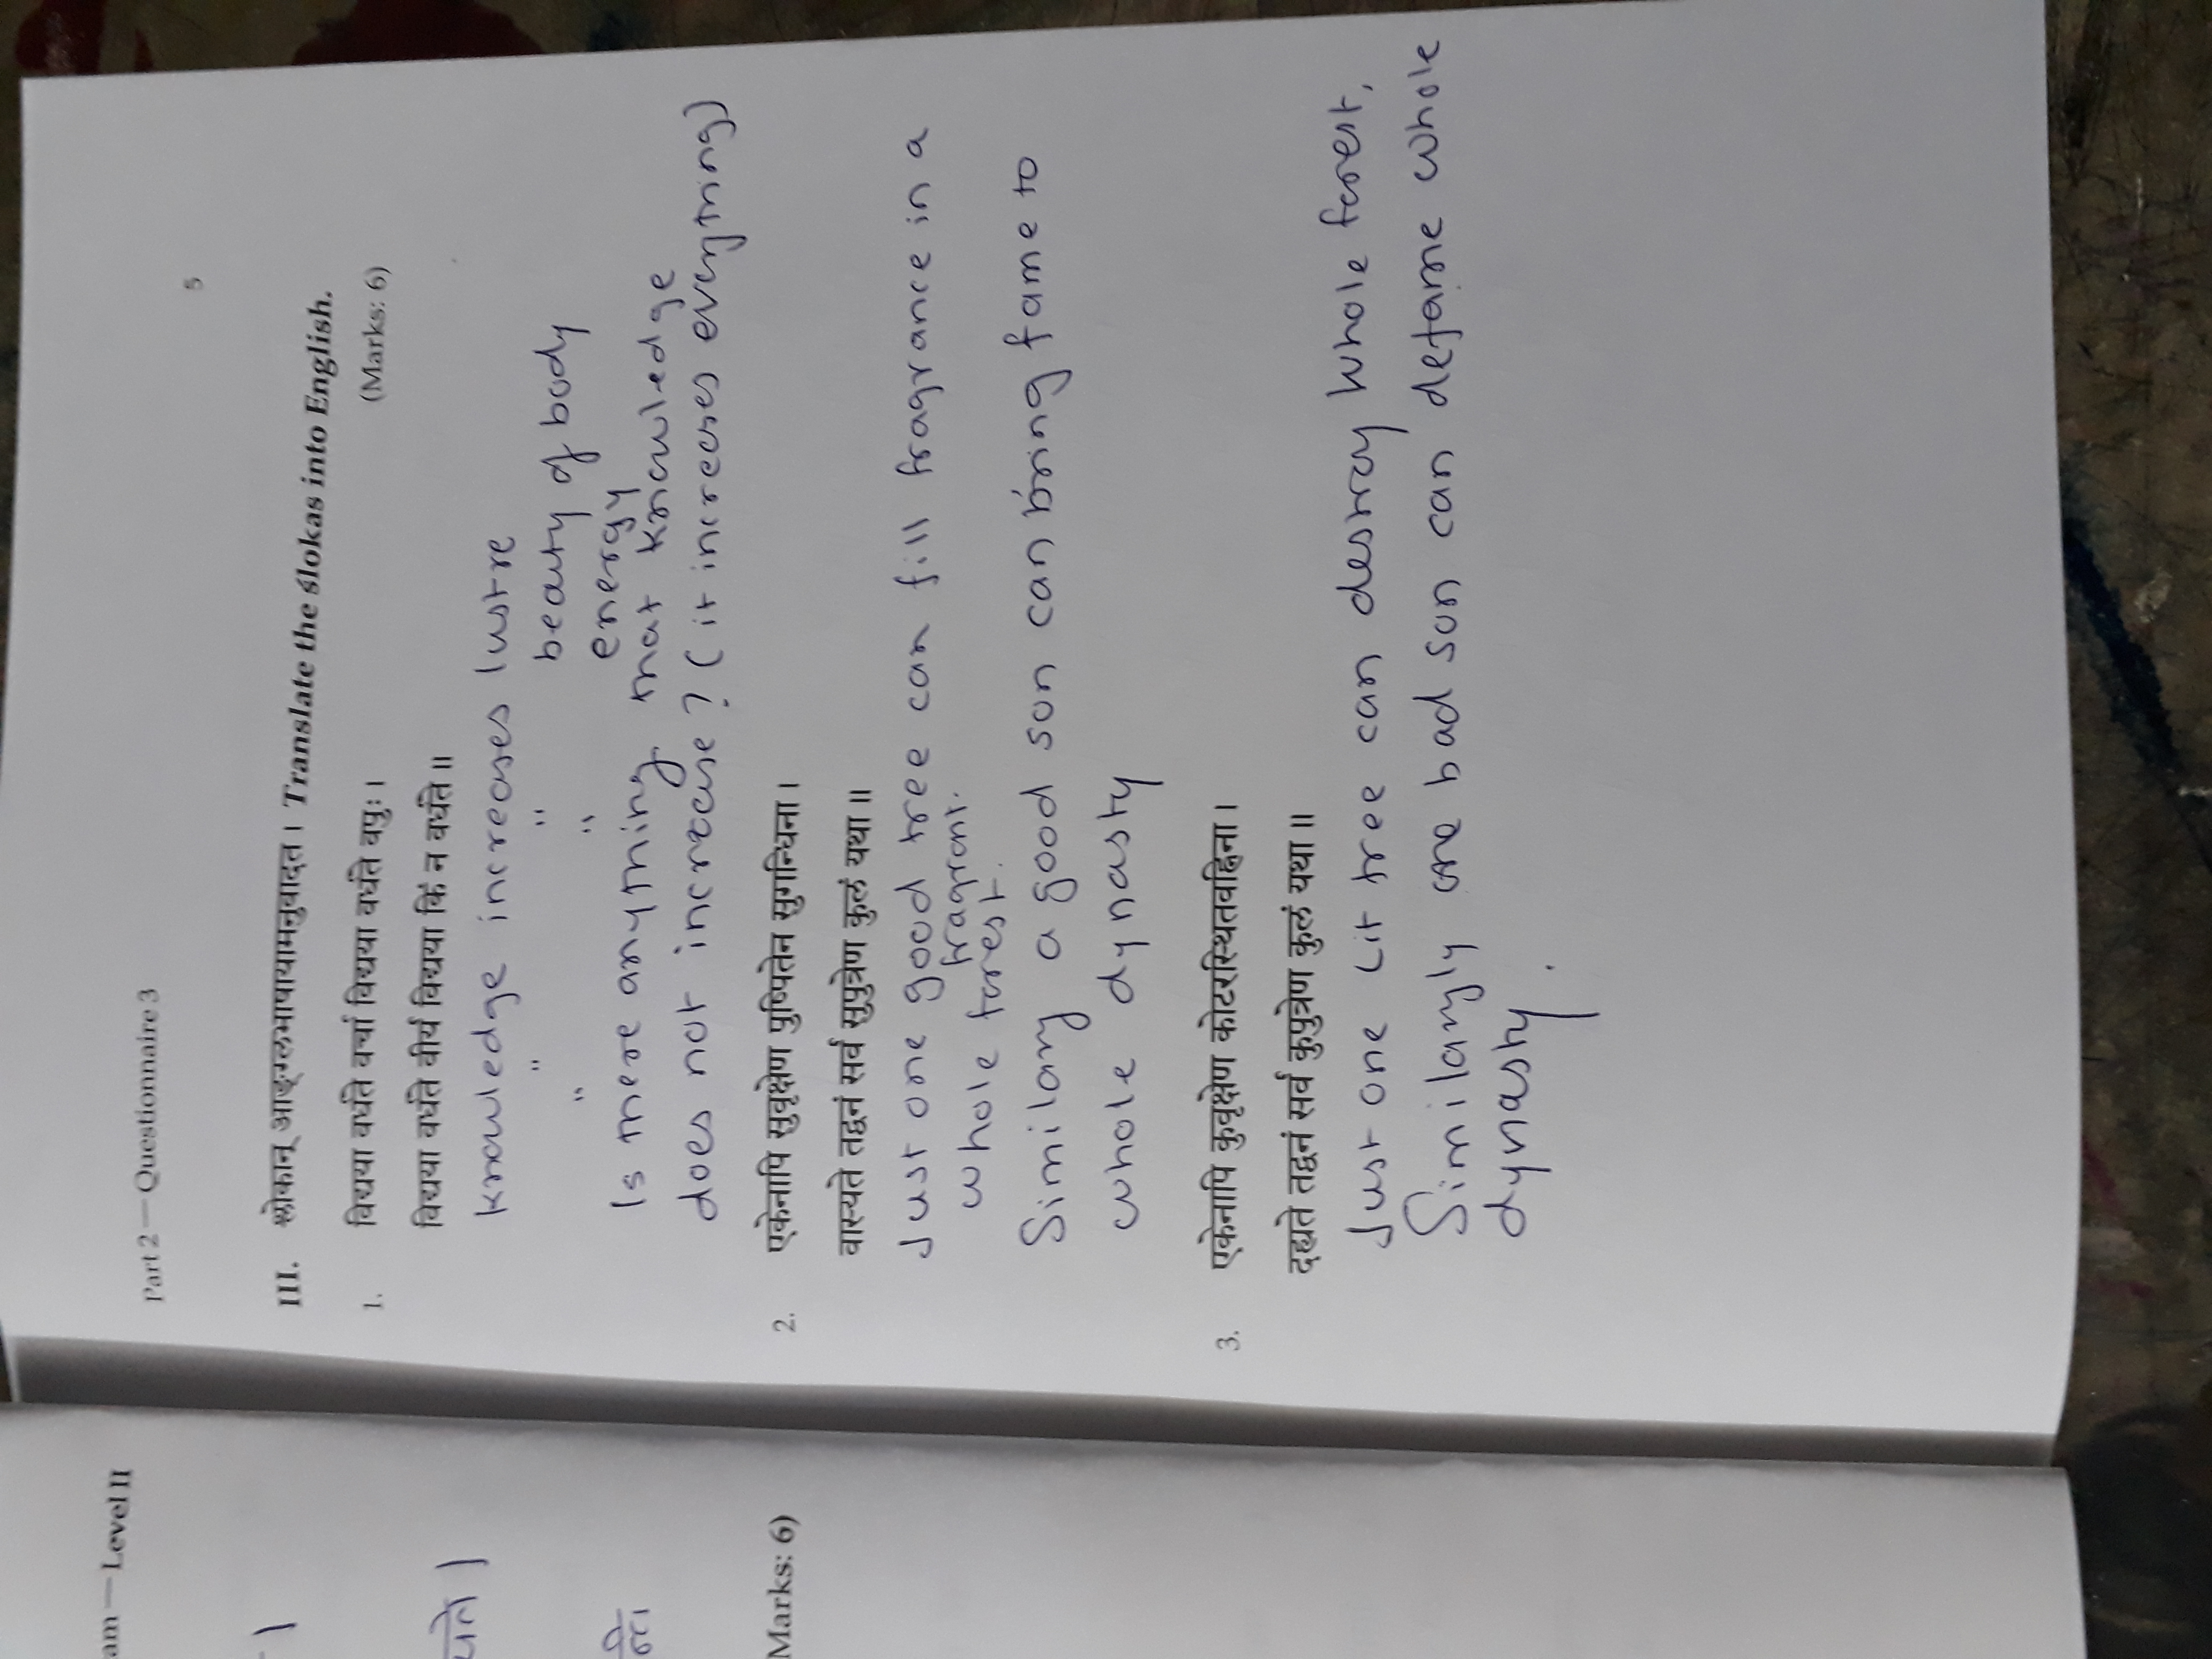 am — Level II
Part 2 — Questionnaire 3
5
III. श्लोकान् आङ्ग्लभाषायामनुवादत । Translate the ślokas into English.
(Marks: 6)
1. विद्यया वर्धते वर्चो विद्यया वर्धते वपुः ।
विद्यया वर्धते वीर्यं विद्यया किं न वर्धते ॥
Knowledge increases lustre
" " beauty of body
" " energy
Is there anything that knowledge
does not increase? (it increases everything)
(Marks: 6)
2. एकेनापि सुवृक्षेण पुष्पितेन सुगन्धिना ।
वास्यते तद्वनं सर्वं सुपुत्रेण कुलं यथा ॥
Just one good tree can fill fragrance in a
fragrant.
whole forest.
Similary a good son can bring fame to
whole dynasty
3. एकेनापि कुवृक्षेण कोटरस्थितवह्निना ।
दह्यते तद्वनं सर्वं कुपुत्रेण कुलं यथा ॥
Just one lit tree can destroy whole forest,
Similarly one bad son can defame whole
dynasty.